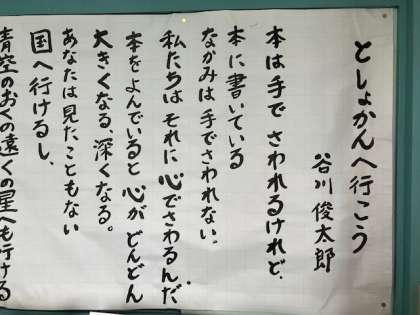 としょかんへ行こう
谷川俊太郎
本は手でさわれるけれど、
本に書いている
なかみは手でさわれない。
私たちはそれに心でさわるんだ。
本をよんでいると心がどんどん
大きくなる、深くなる。
あなたは見たこともない
国へ行けるし、
青空のおくの遠くの星へも行ける